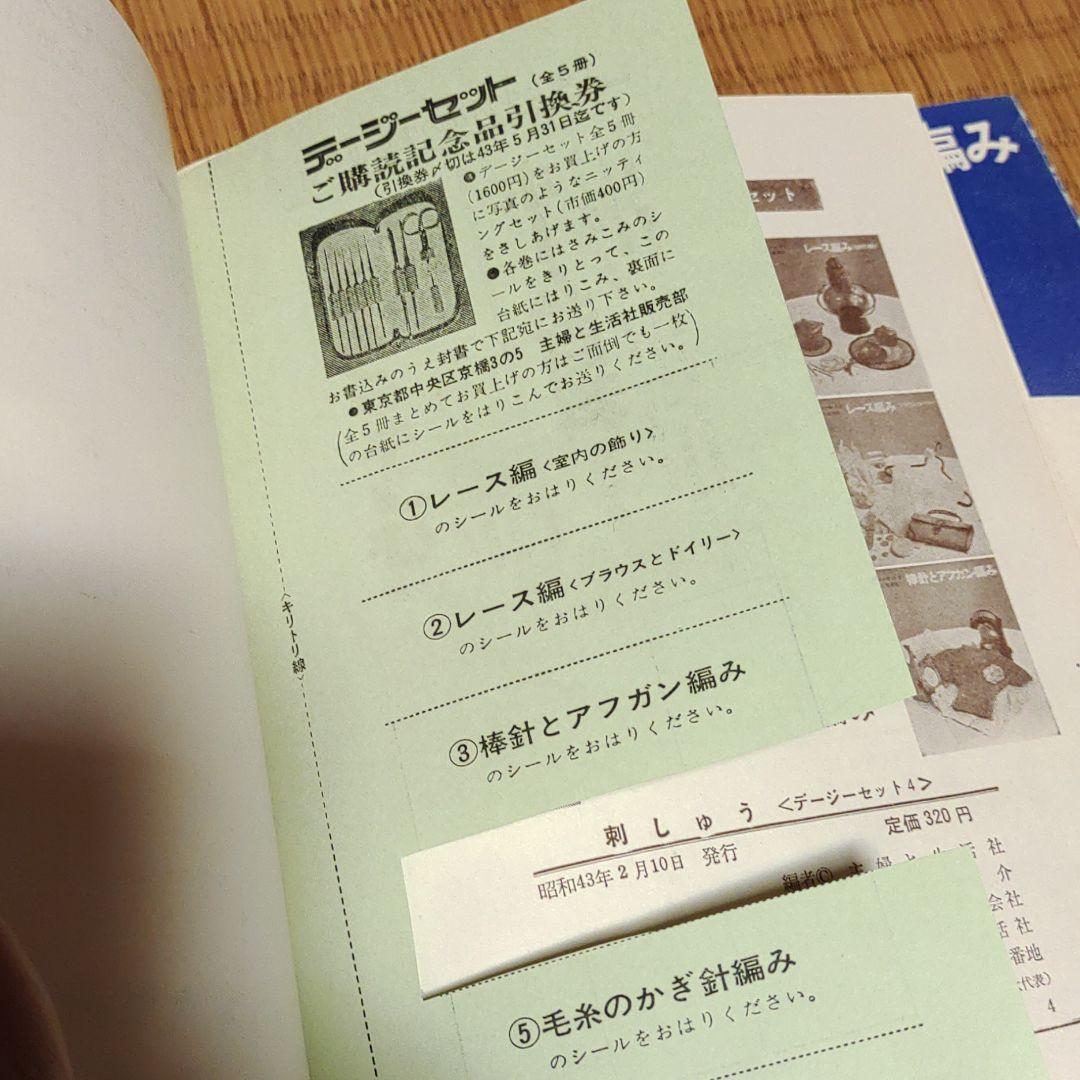 デージーセット(全5冊)
ご購読記念品引換券
(引換券〆切は43年5月31日迄です)
●デージーセット全5冊
(1600円)をお買上げの方
に写真のようなニッティ
ングセット(市価400円)
をさしあげます。
●各巻にはさみこみのシ
ールをきりとって、この
台紙にはりこみ、裏面に
お書込みのうえ封書で下記宛にお送り下さい。
●東京都中央区京橋3の5 主婦と生活社販売部
(全5冊まとめてお買上げの方はご面倒でも一枚
の台紙にシールをはりこんでお送りください。)
①レース編<室内の飾り>
のシールをおはりください。
②レース編<ブラウスとドイリー>
のシールをおはりください。
③棒針とアフガン編み
のシールをおはりください。
⑤毛糸のかぎ針編み
のシールをおはりください。
<キリトリ線>
刺しゅう <デージーセット4>
定価320円
昭和43年2月10日 発行
編者© 主婦と生活社
介
会社
活社
番地
代表)
4
編み
セット
レース編み
レース編み
棒針とアフガン編み